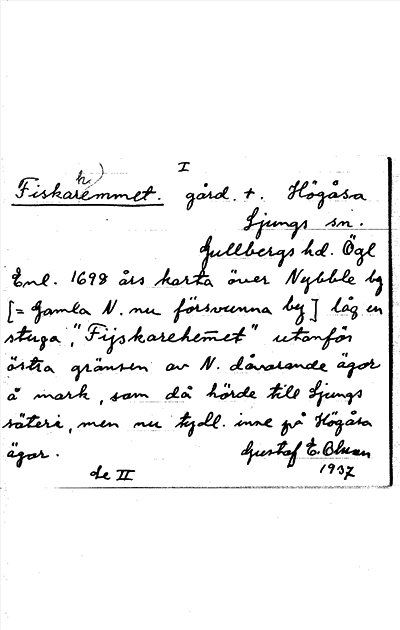 I
h)
Fiskaremmet. gård. †. Högåsa
Ljungs sn.
Gullbergs hd. Ögl
Enl. 1698 års karta över Nybble by
[= Gamla N. nu försvunna by] låg en
stuga, "Fijskarehem̅et" utanför
östra gränsen av N. dåvarande ägor
å mark, som då hörde till Ljungs
säteri, men nu tydl. inne på Högåsa
ägor.
Gustaf E.
se II
1937